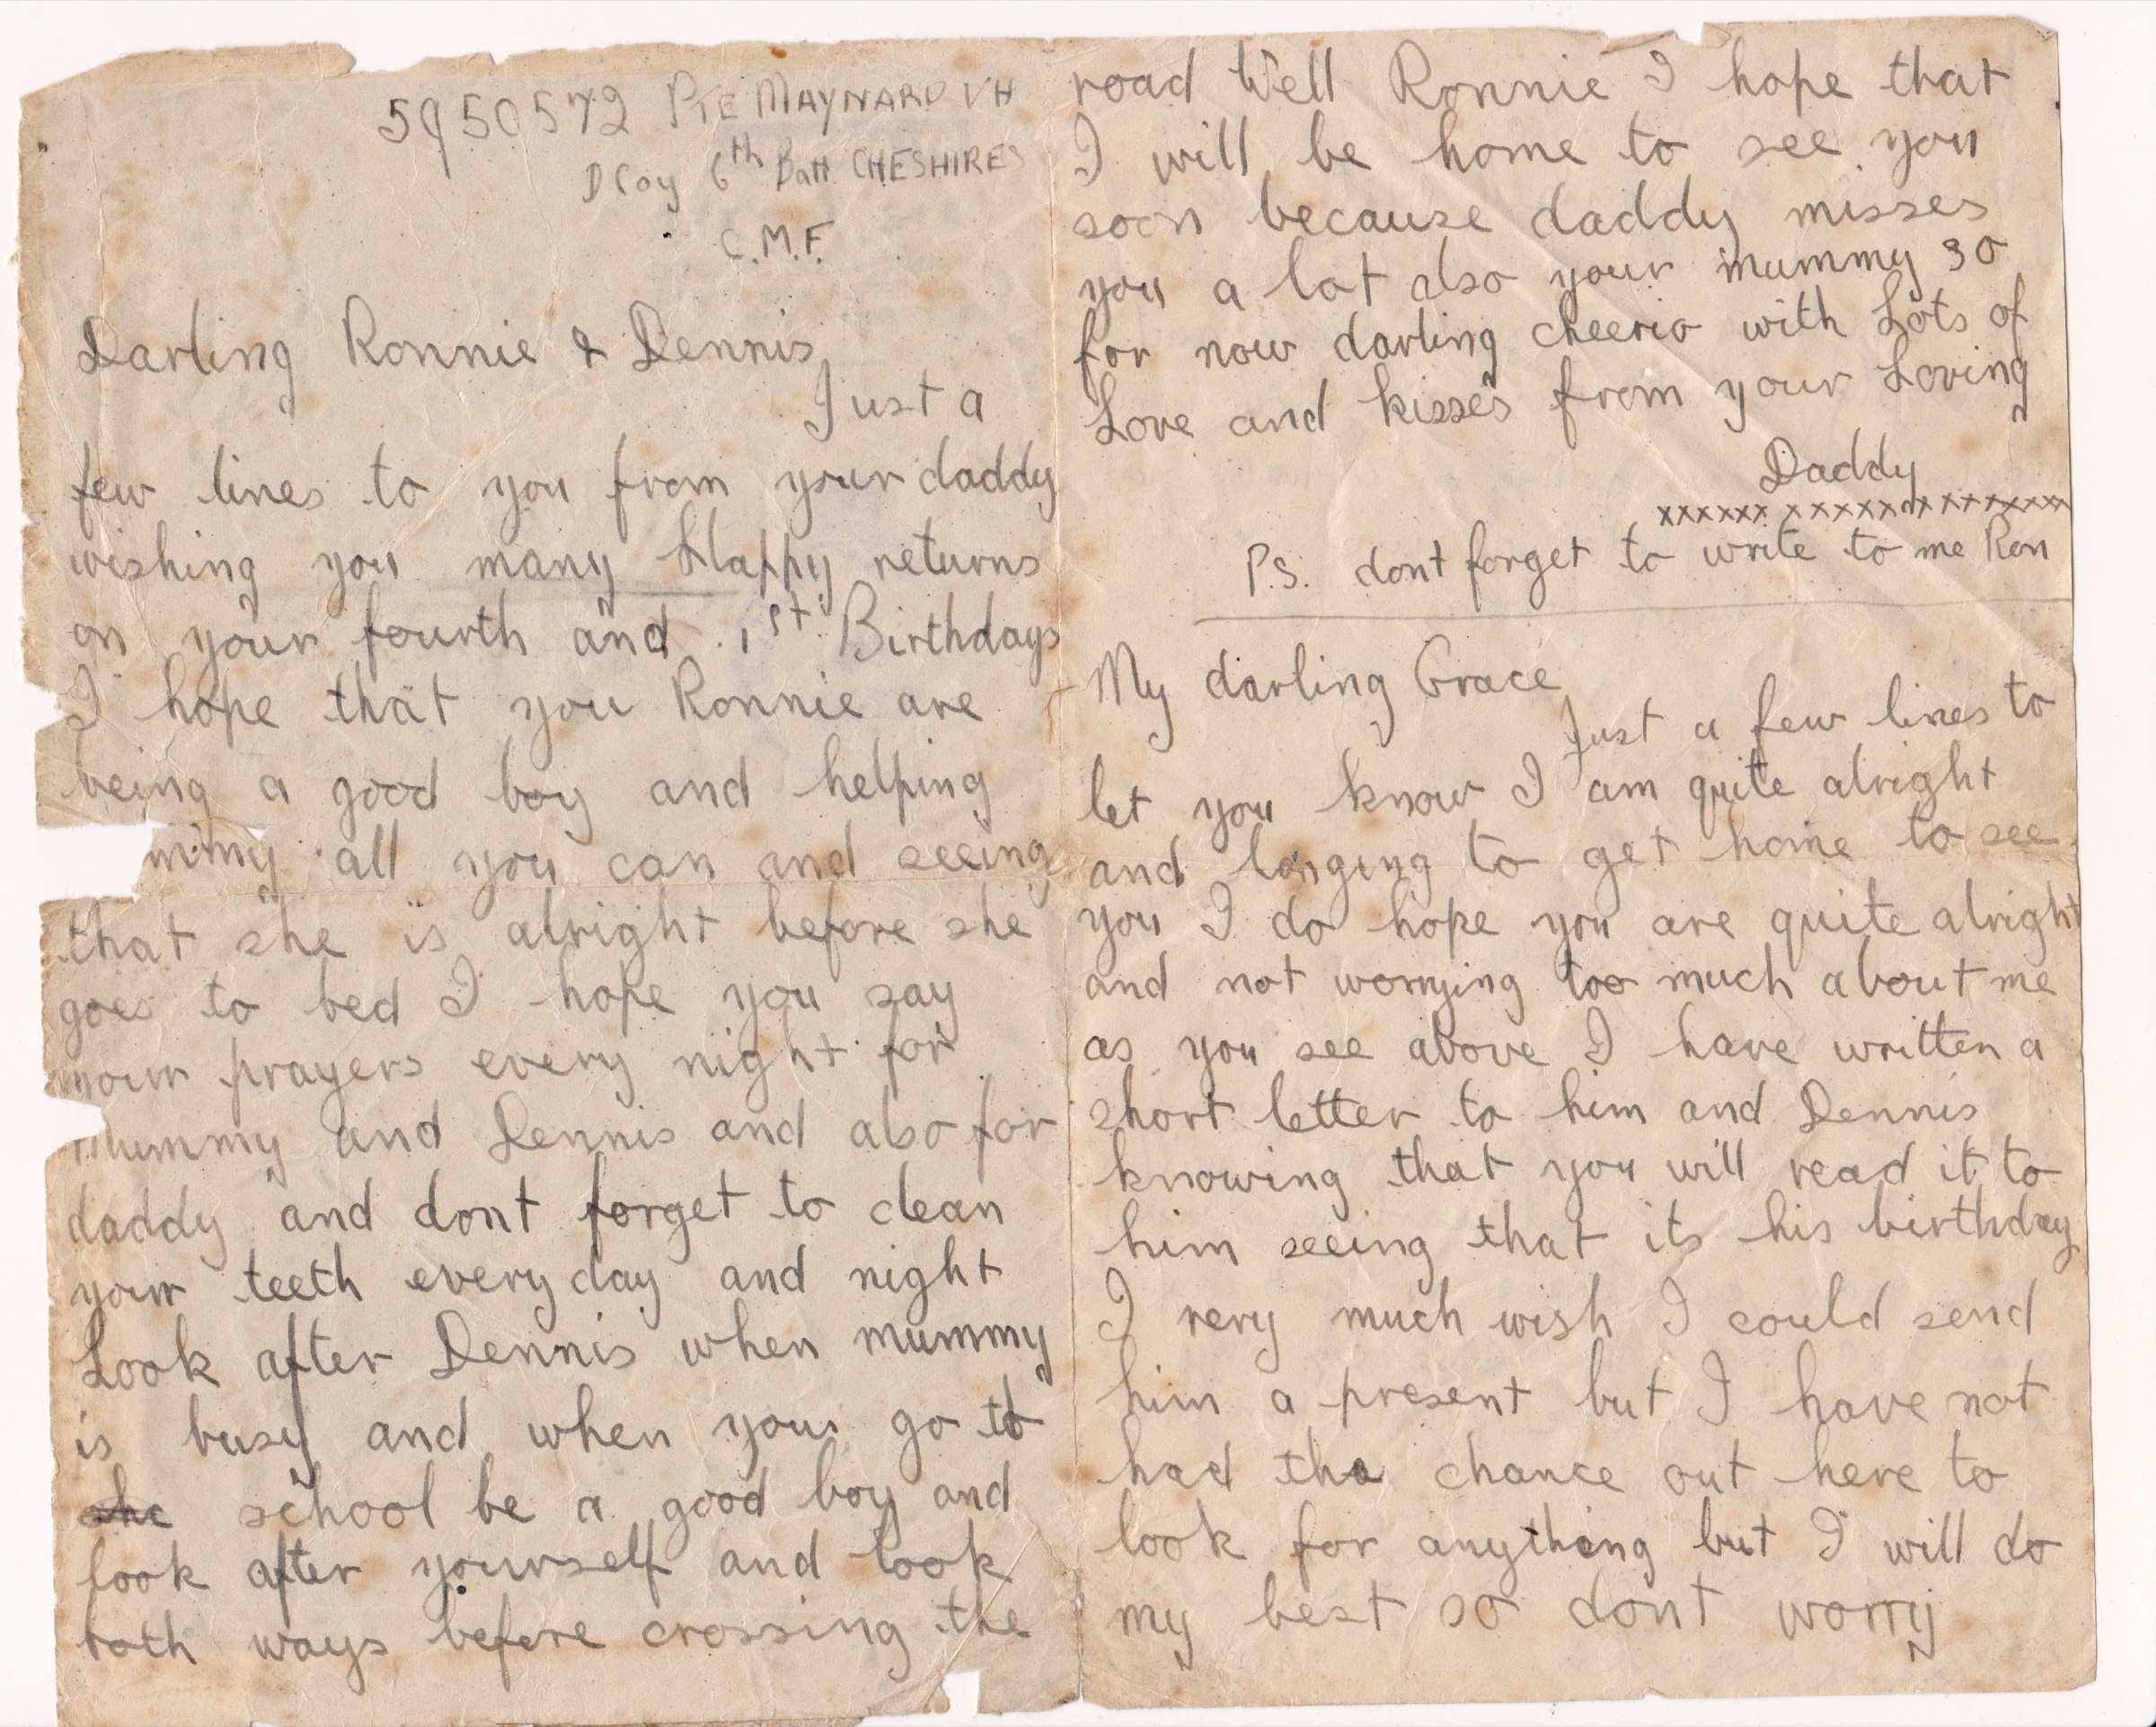 5950572 PTE MAYNARD VH
D Coy 6th Batt CHESHIRES
C.M.F.
Darling Ronnie & Dennis
Just a
few lines to you from your daddy
wishing you many Happy returns
on your fourth and 1st Birthdays
I hope that you Ronnie are
being a good boy and helping
mmy all you can and seeing
that she is alright before she
goes to bed I hope you say
your prayers every night for
Mummy and Dennis and also for
daddy and dont forget to clean
your teeth every day and night
Look after Dennis when mummy
is busy and when you go to
she school be a good boy and
look after yourself and look
both ways before crossing the
road Well Ronnie I hope that
I will be home to see you
soon because daddy misses
you a lot also your mummy so
for now darling cheerio with Lots of
Love and kisses from your Loving
Daddy
xxxxxx xxxxxxxxxxxxxx
P.S. dont forget to write to me Ron
My darling Grace
Just a few lines to
let you know I am quite alright
and longing to get home to see
you I do hope you are quite alright
and not worrying too much about me
as you see above I have written a
short letter to him and Dennis
knowing that you will read it to
him seeing that its his birthday
I very much wish I could send
him a present but I have not
had the chance out here to
look for anything but I will do
my best so dont worry